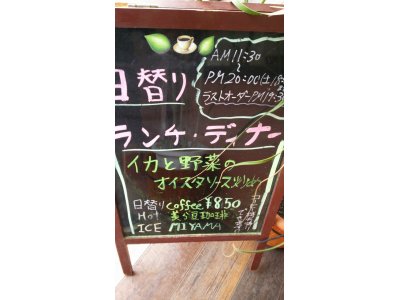 AM11:30
～
PM20:00(土
日替り
ラストオーダーPM19:30
ランチ・ディナー
イカと野菜の
オイスタソース炒め
日替り Coffee ¥850
Hot 美今豆珈琲
ICE MIYAMA